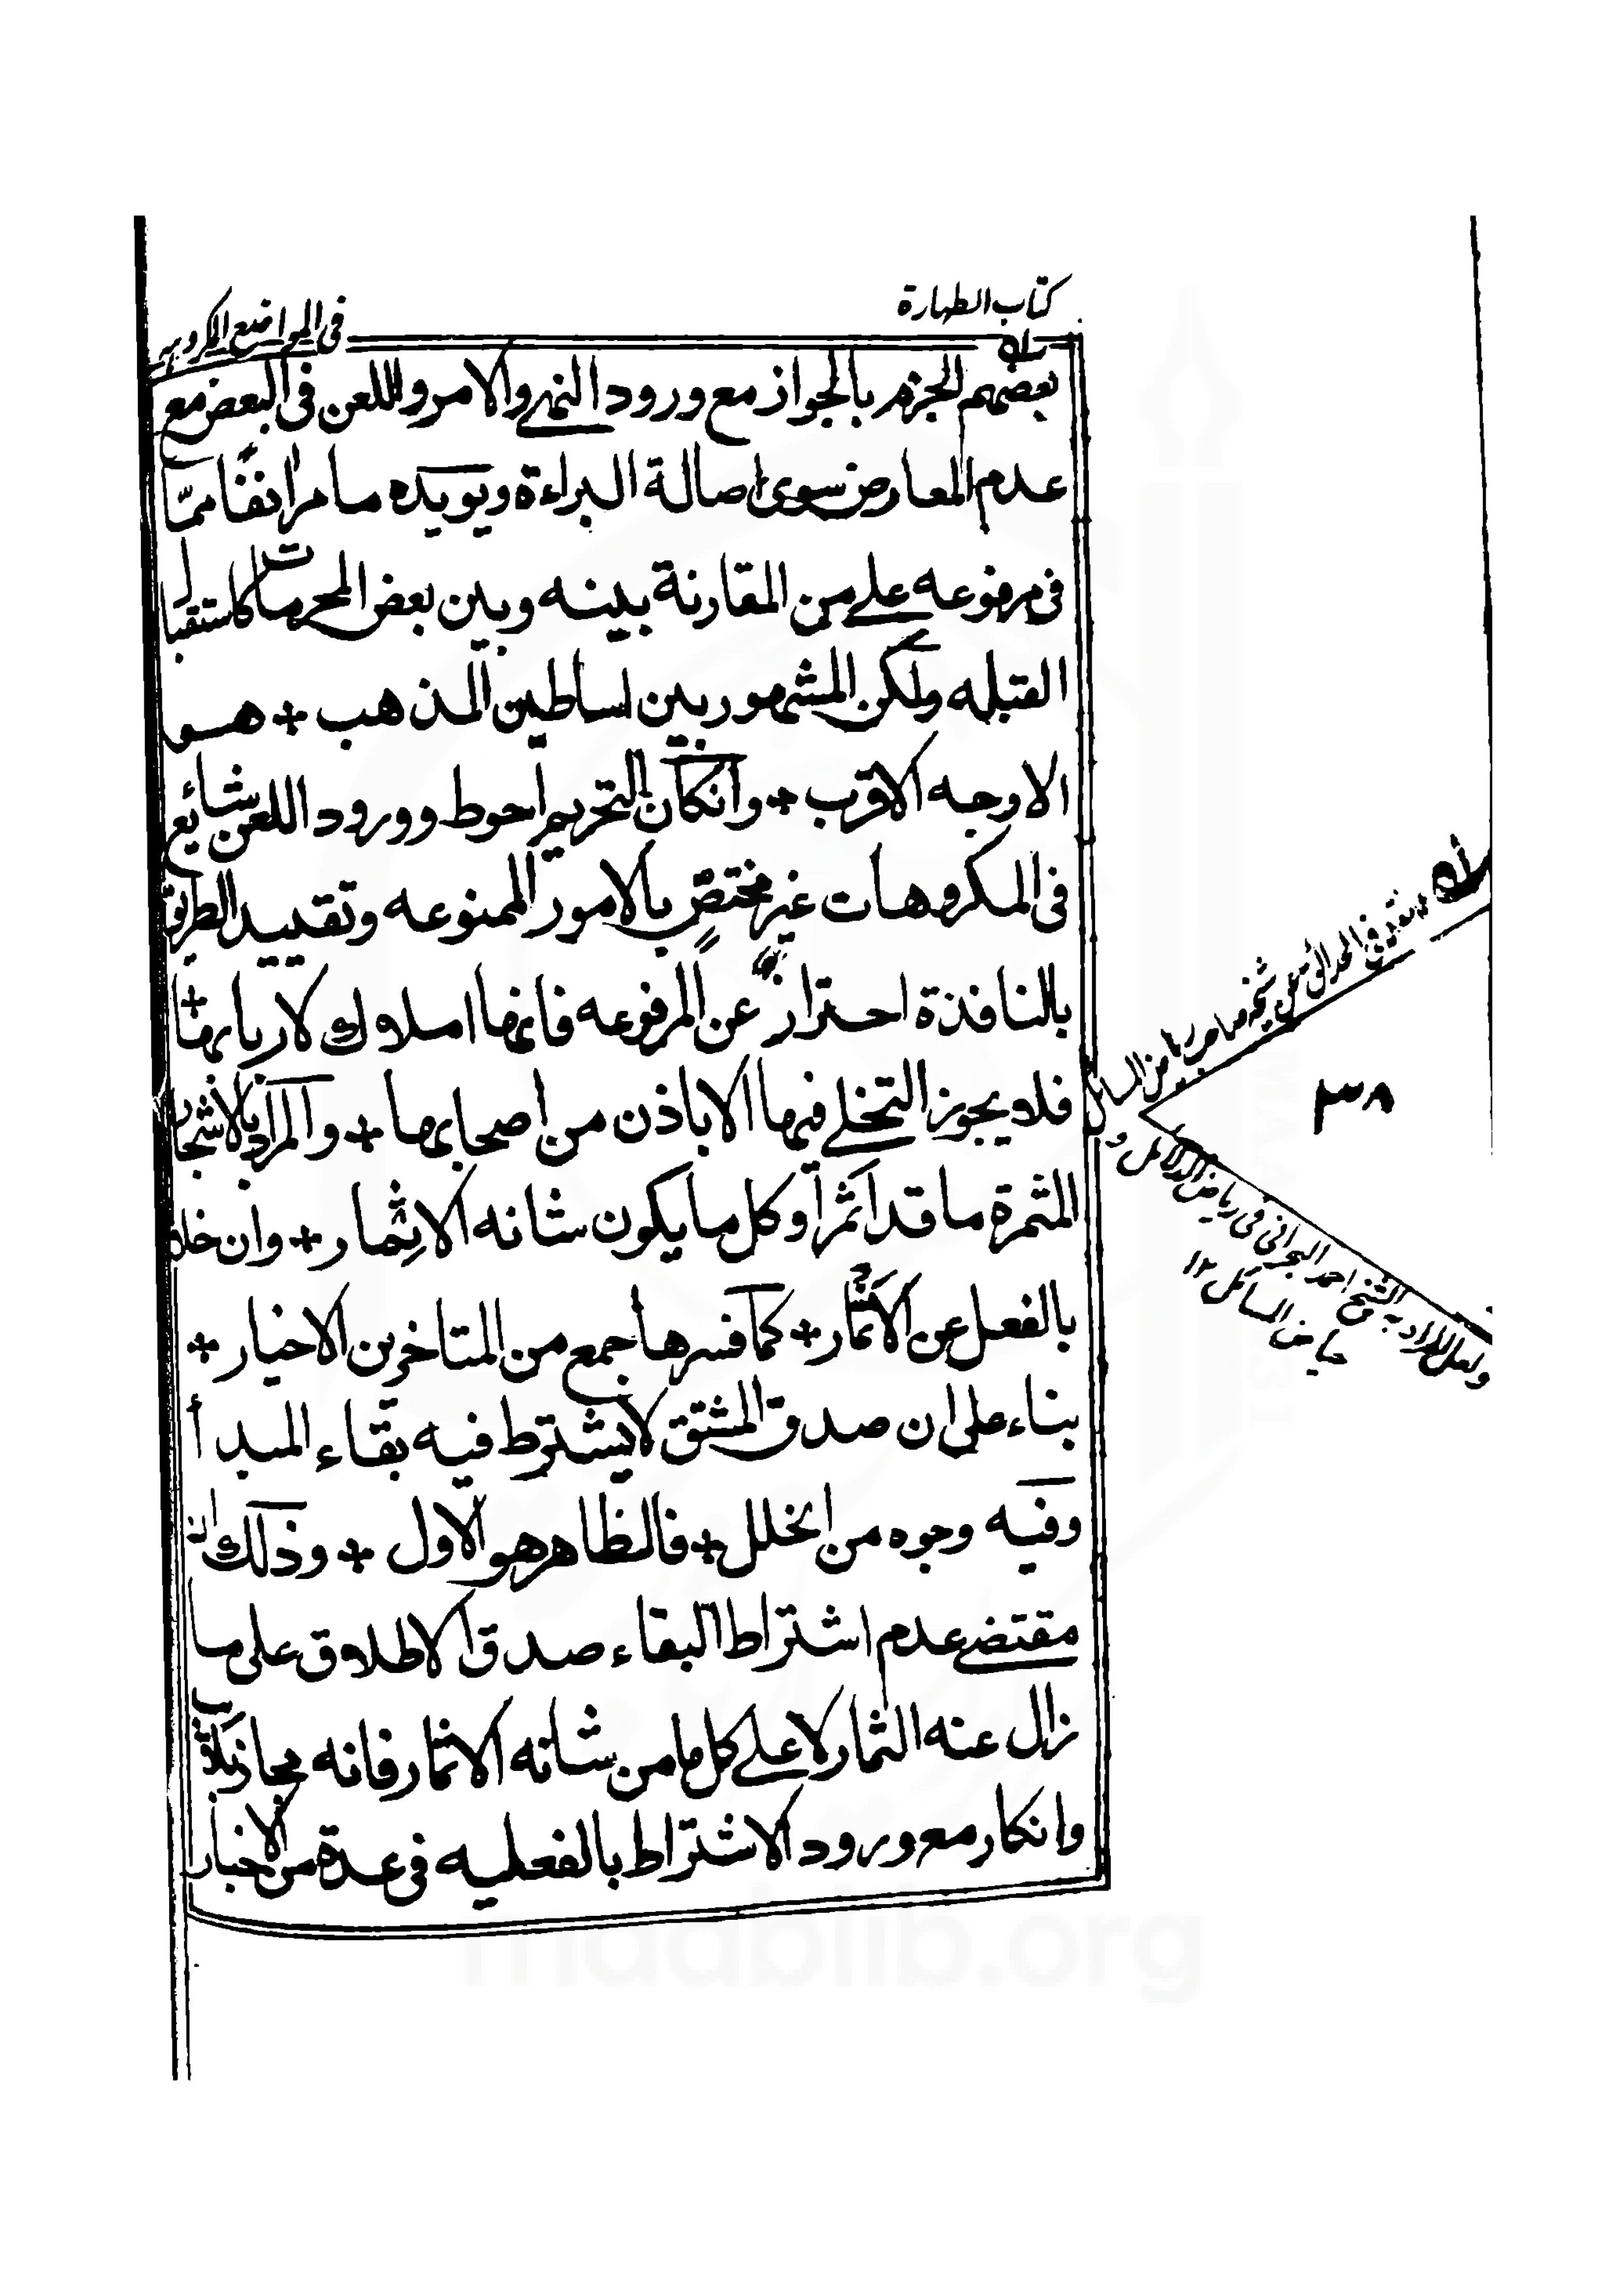 كتاب الطهارة
فى المواضع المكروهه
بعضهم الجزم بالجواز مع ورود النهى والامر واللعن فى البعض مع
عدم المعارض سوى اصالة البراءة ويويده ما مر انفا مما
فى مرفوعه على من المقارنة بينه وبين بعض المحرمات كاستقبال
القبله ولكن المشهور بين اساطين المذهب + هو
الاوجه الاقرب + وانكان التحريم احوط وورود اللعن شائع
فى المكروهات غير مختص بالامور الممنوعه وتقييد الطريق
بالنافذة احتراز عن المرفوعه فانها املاك لاربابها +
فلا يجوز التخلى فيها الا باذن من اصحابها + والمراد بالاشجار
المثمرة ما قد اثمر او كل ما يكون شانه الاثمار + وان خلا
بالفعل عن الاثمار + كما فسرها جمع من المتاخرين الاخيار +
بناء على ان صدق المشتق لا يشترط فيه بقاء المبدأ
وفيه وجوه من الخلل + فالظاهر هو الاول + وذلك لان
مقتضى عدم اشتراط البقاء صدق الاطلاق على ما
زال عنه الثمار لا على كل ما من شانه الاثمار فانه مجاز بلا ريب
وانكار مع ورود الاشتراط بالفعليه فى عدة من الاخبار
نقله فى الحدائق عن شيخه صاحب رياض المسائل
٣٨
ولعل المراد به الشيخ احمد البحرانى فى رياض الدلائل و
حياض المسائل ١٢
madblib.org